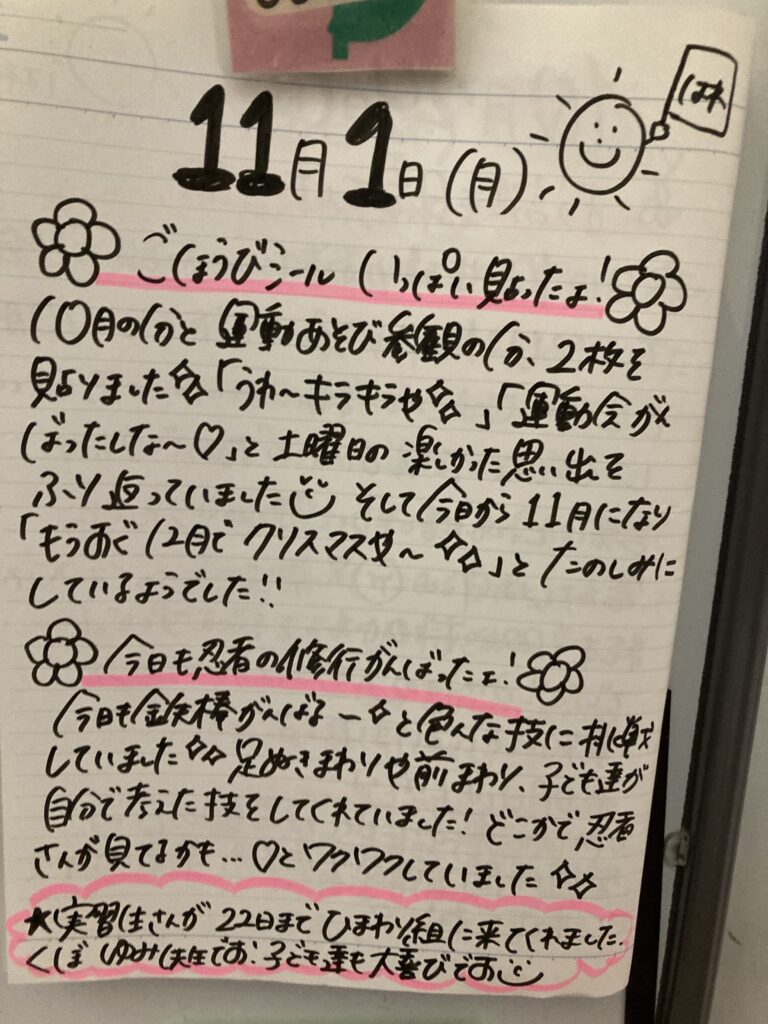 11月1日(月)
はれ
ごほうびシール いっぱい貼ったよ!
10月の分と 運動あそび参観の分、2枚を
貼りました「うわ〜キラキラや」「運動会がん
ばったしな〜♡」と土曜日の楽しかった思い出を
ふり返っていました そして今日から11月になり
「もうすぐ12月でクリスマスや〜」とたのしみに
しているようでした!!
今日も忍者の修行がんばったよ!
今日も鉄棒がんばるー と色んな技に挑戦
していました 足ぬきまわりや前まわり、子ども達が
自分で考えた技をしてくれていました! どこかで、忍者
さんが見てるかも…♡とワクワクしていました
★実習生さんが22日までひまわり組に来てくれました。
くぼ ゆみ先生です! 子ども達も大喜びです